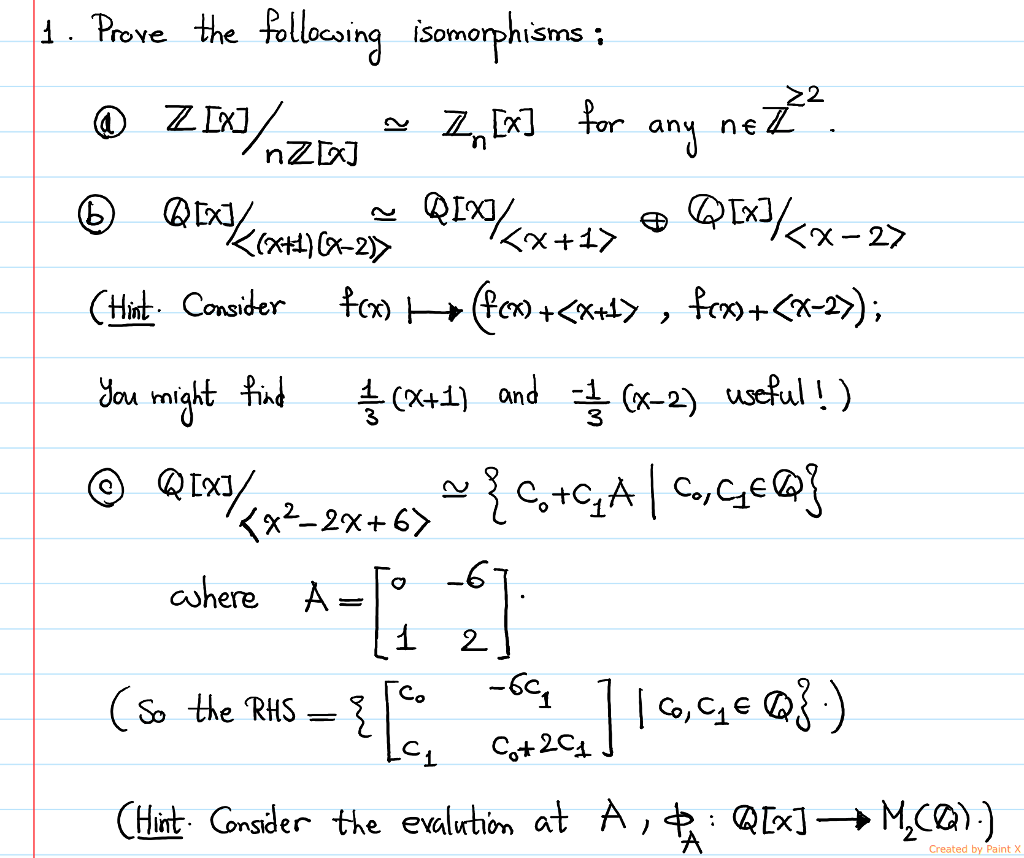 1. Prove the following isomorphisms:
ⓐ ℤ[x]/nℤ[x] ≃ ℤₙ[x] for any n∈ℤ^≥2.
ⓑ ℚ[x]/<(x+1)(x-2)> ≃ ℚ[x]/<x+1> ⊕ ℚ[x]/<x-2>
(Hint. Consider f(x) ↦ (f(x)+<x+1>, f(x)+<x-2>);
You might find 1/3 (x+1) and -1/3 (x-2) useful!)
ⓒ ℚ[x]/<x²-2x+6> ≃ {c₀+c₁A | c₀,c₁∈ℚ}
where A = [0 -6
1 2].
(So the RHS = {[c₀ -6c₁
c₁ c₀+2c₁] | c₀,c₁∈ℚ}.)
(Hint. Consider the evalution at A, ϕ_A : ℚ[x] → M₂(ℚ).)
Created by Paint X